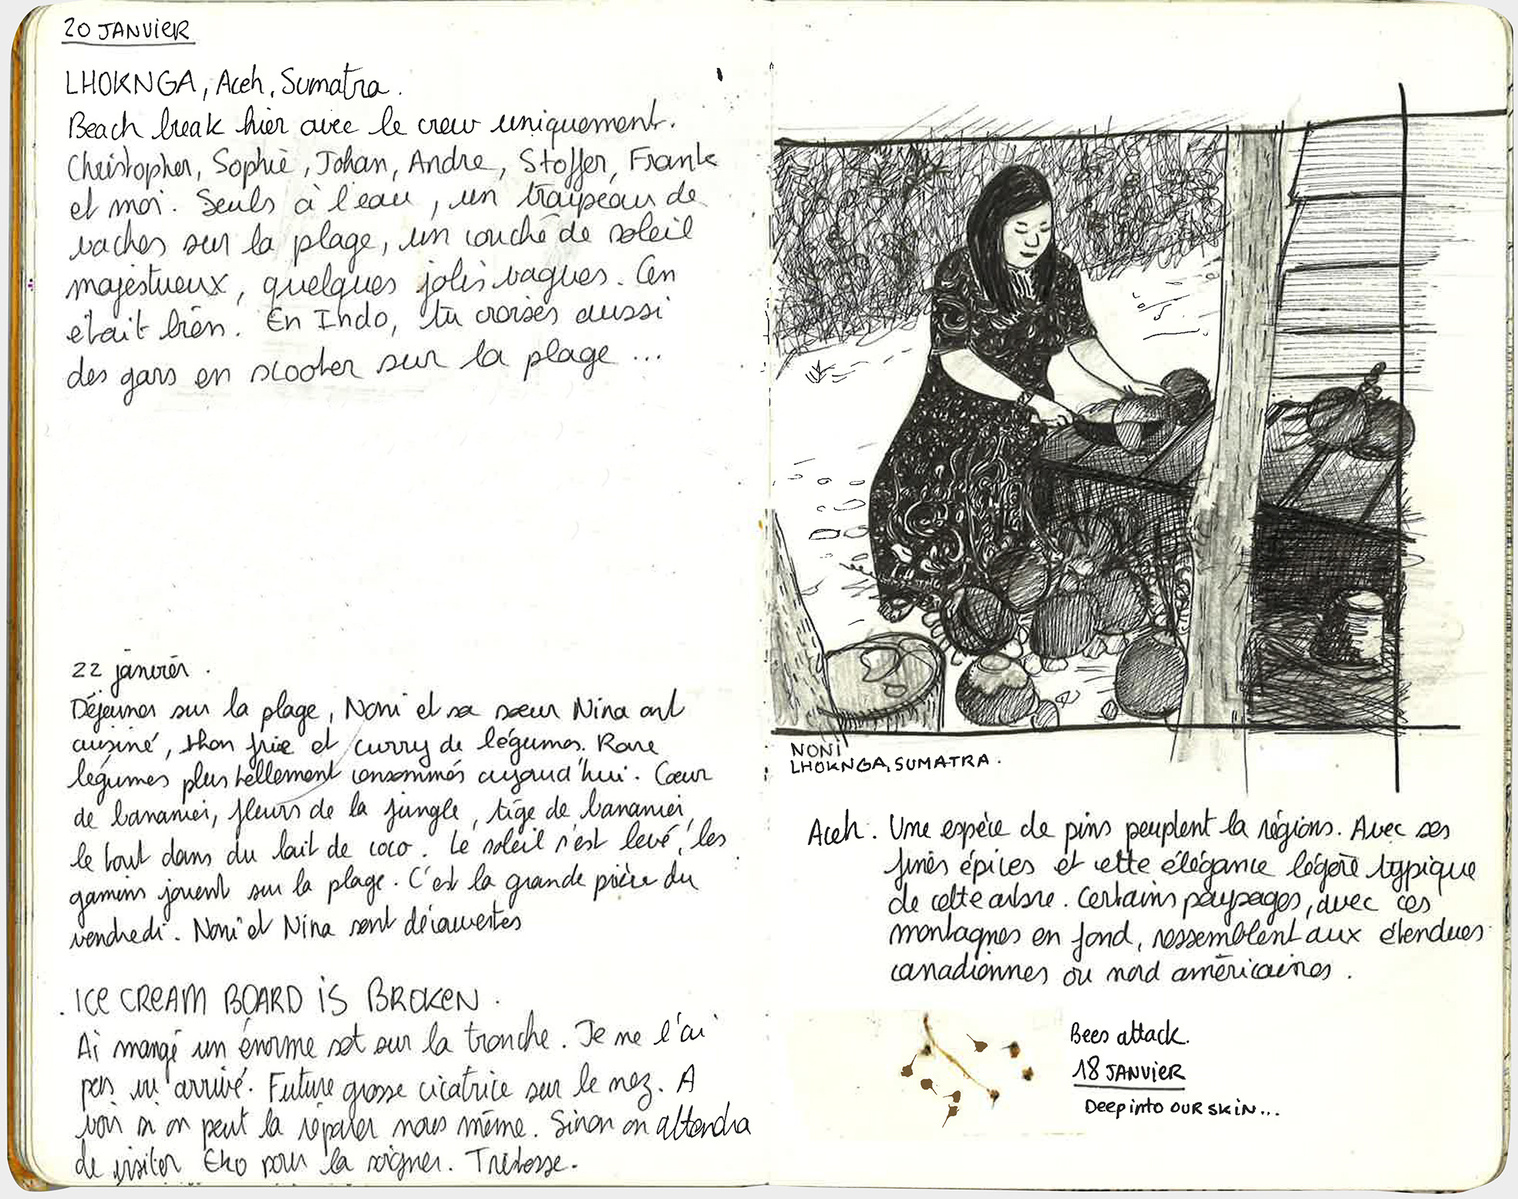 20 JANVIER
LHOKNGA, Aceh, Sumatra.
Beach break hier avec le crew uniquement.
Christopher, Sophie, Johan, Andre, Stoffer, Frank
et moi. Seuls à l'eau, un troupeau de
vaches sur la plage, un couché de soleil
majestueux, quelques jolies vagues. C'en
était bien. En Indo, tu croises aussi
des gars en scooter sur la plage ...
22 janvier.
Déjeuner sur la plage, Noni et sa sœur Nina ont
cuisiné, thon frie et curry de légumes. Rare
légumes plus tellement consommés aujourd'hui. Cœur
de bananier, fleurs de la jungle, tige de bananier,
le tout dans du lait de coco. Le soleil s'est levé, les
gamins jouent sur la plage. C'est la grande prière du
vendredi. Noni et Nina sont découvertes
. ICE CREAM BOARD IS BROKEN.
Ai mangé un énorme set sur la tronche. Je ne l'ai
pas vu arrivé. Future grosse cicatrice sur le nez. A
voir si on peut la réparer nous même. Sinon on attendra
de visiter Eko pour la soigner. Tristesse.
NONI
LHOKNGA, SUMATRA.
Aceh. Une espèce de pins peuplent la régions. Avec ses
fines épices et cette élégance légère typique
de cette arbre. Certains paysages, avec ces
montagnes en fond, ressemblent aux étendues
canadiennes ou nord américaines.
Bees attack.
18 JANVIER
Deep into OUR SKIN...